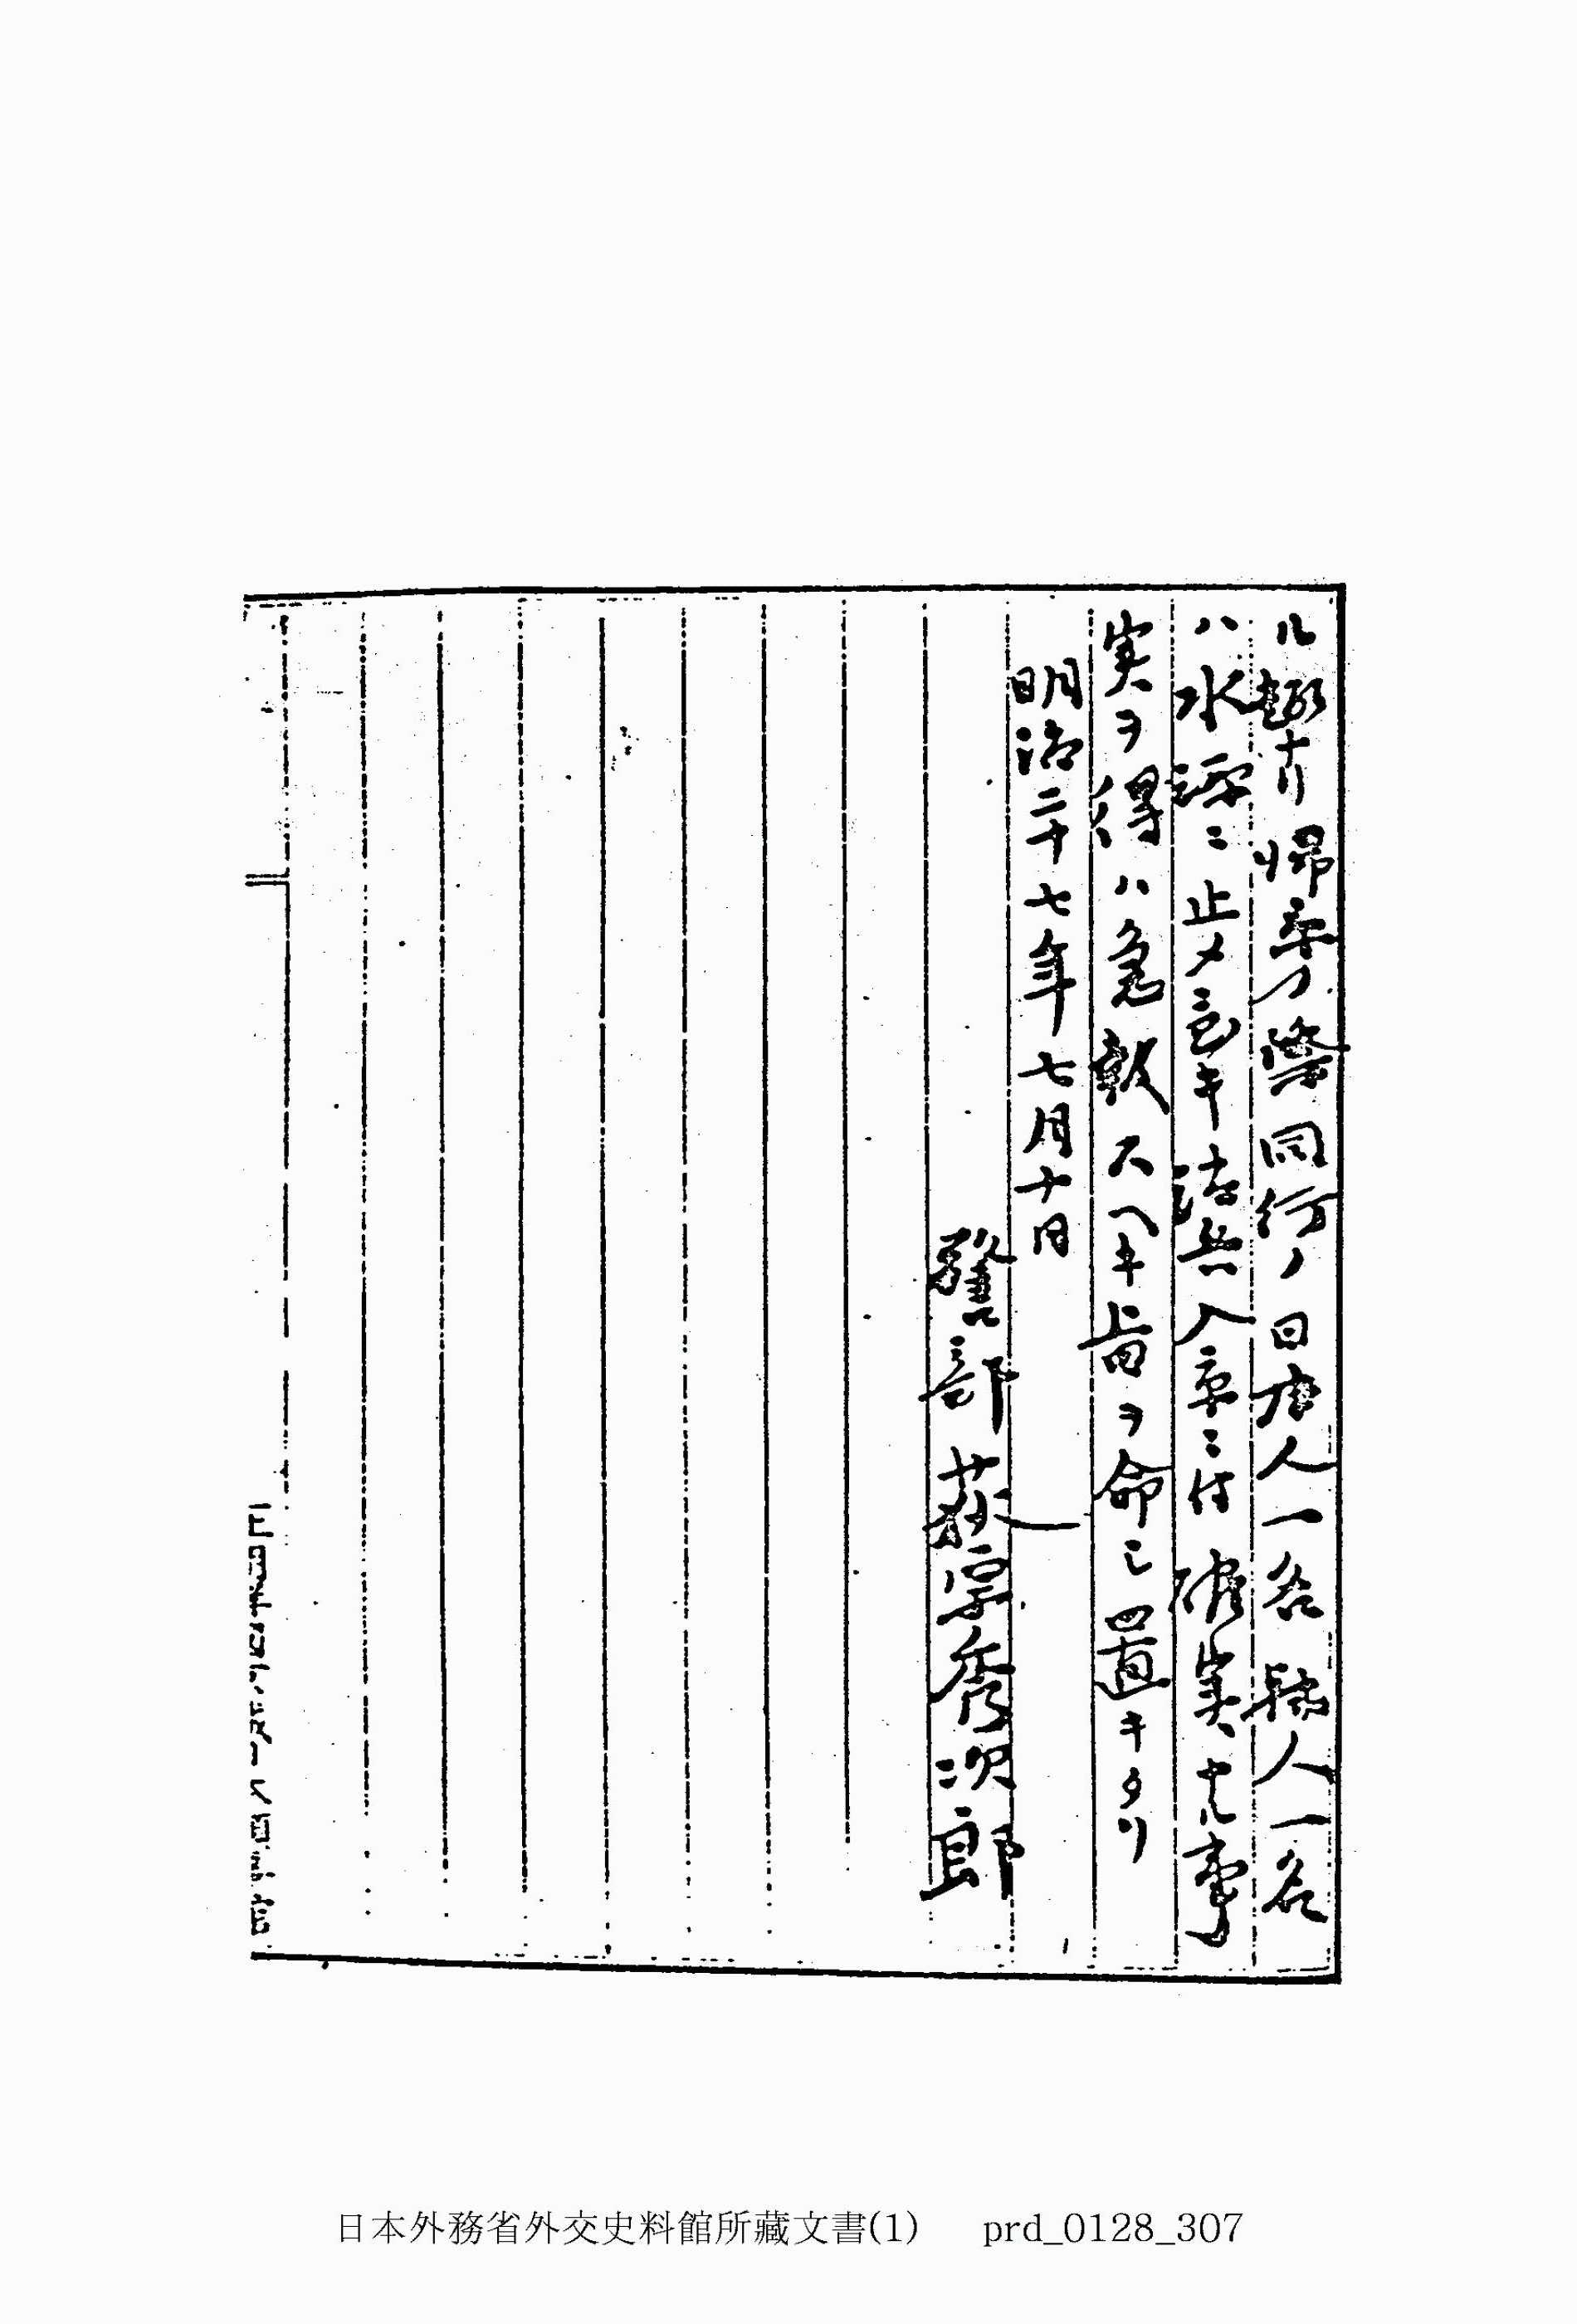 ル趣ナリ帰京ノ際同行ノ日本人一名韓人一名
ハ水原ニ止メ置キ清兵入京ニ付確実ナル事
実ヲ得ハ急報スヘキ旨ヲ命シ置キタリ
明治二十七年七月十日
警部 荻原秀次郎
日本外務省外交史料館所藏文書(1) prd_0128_307